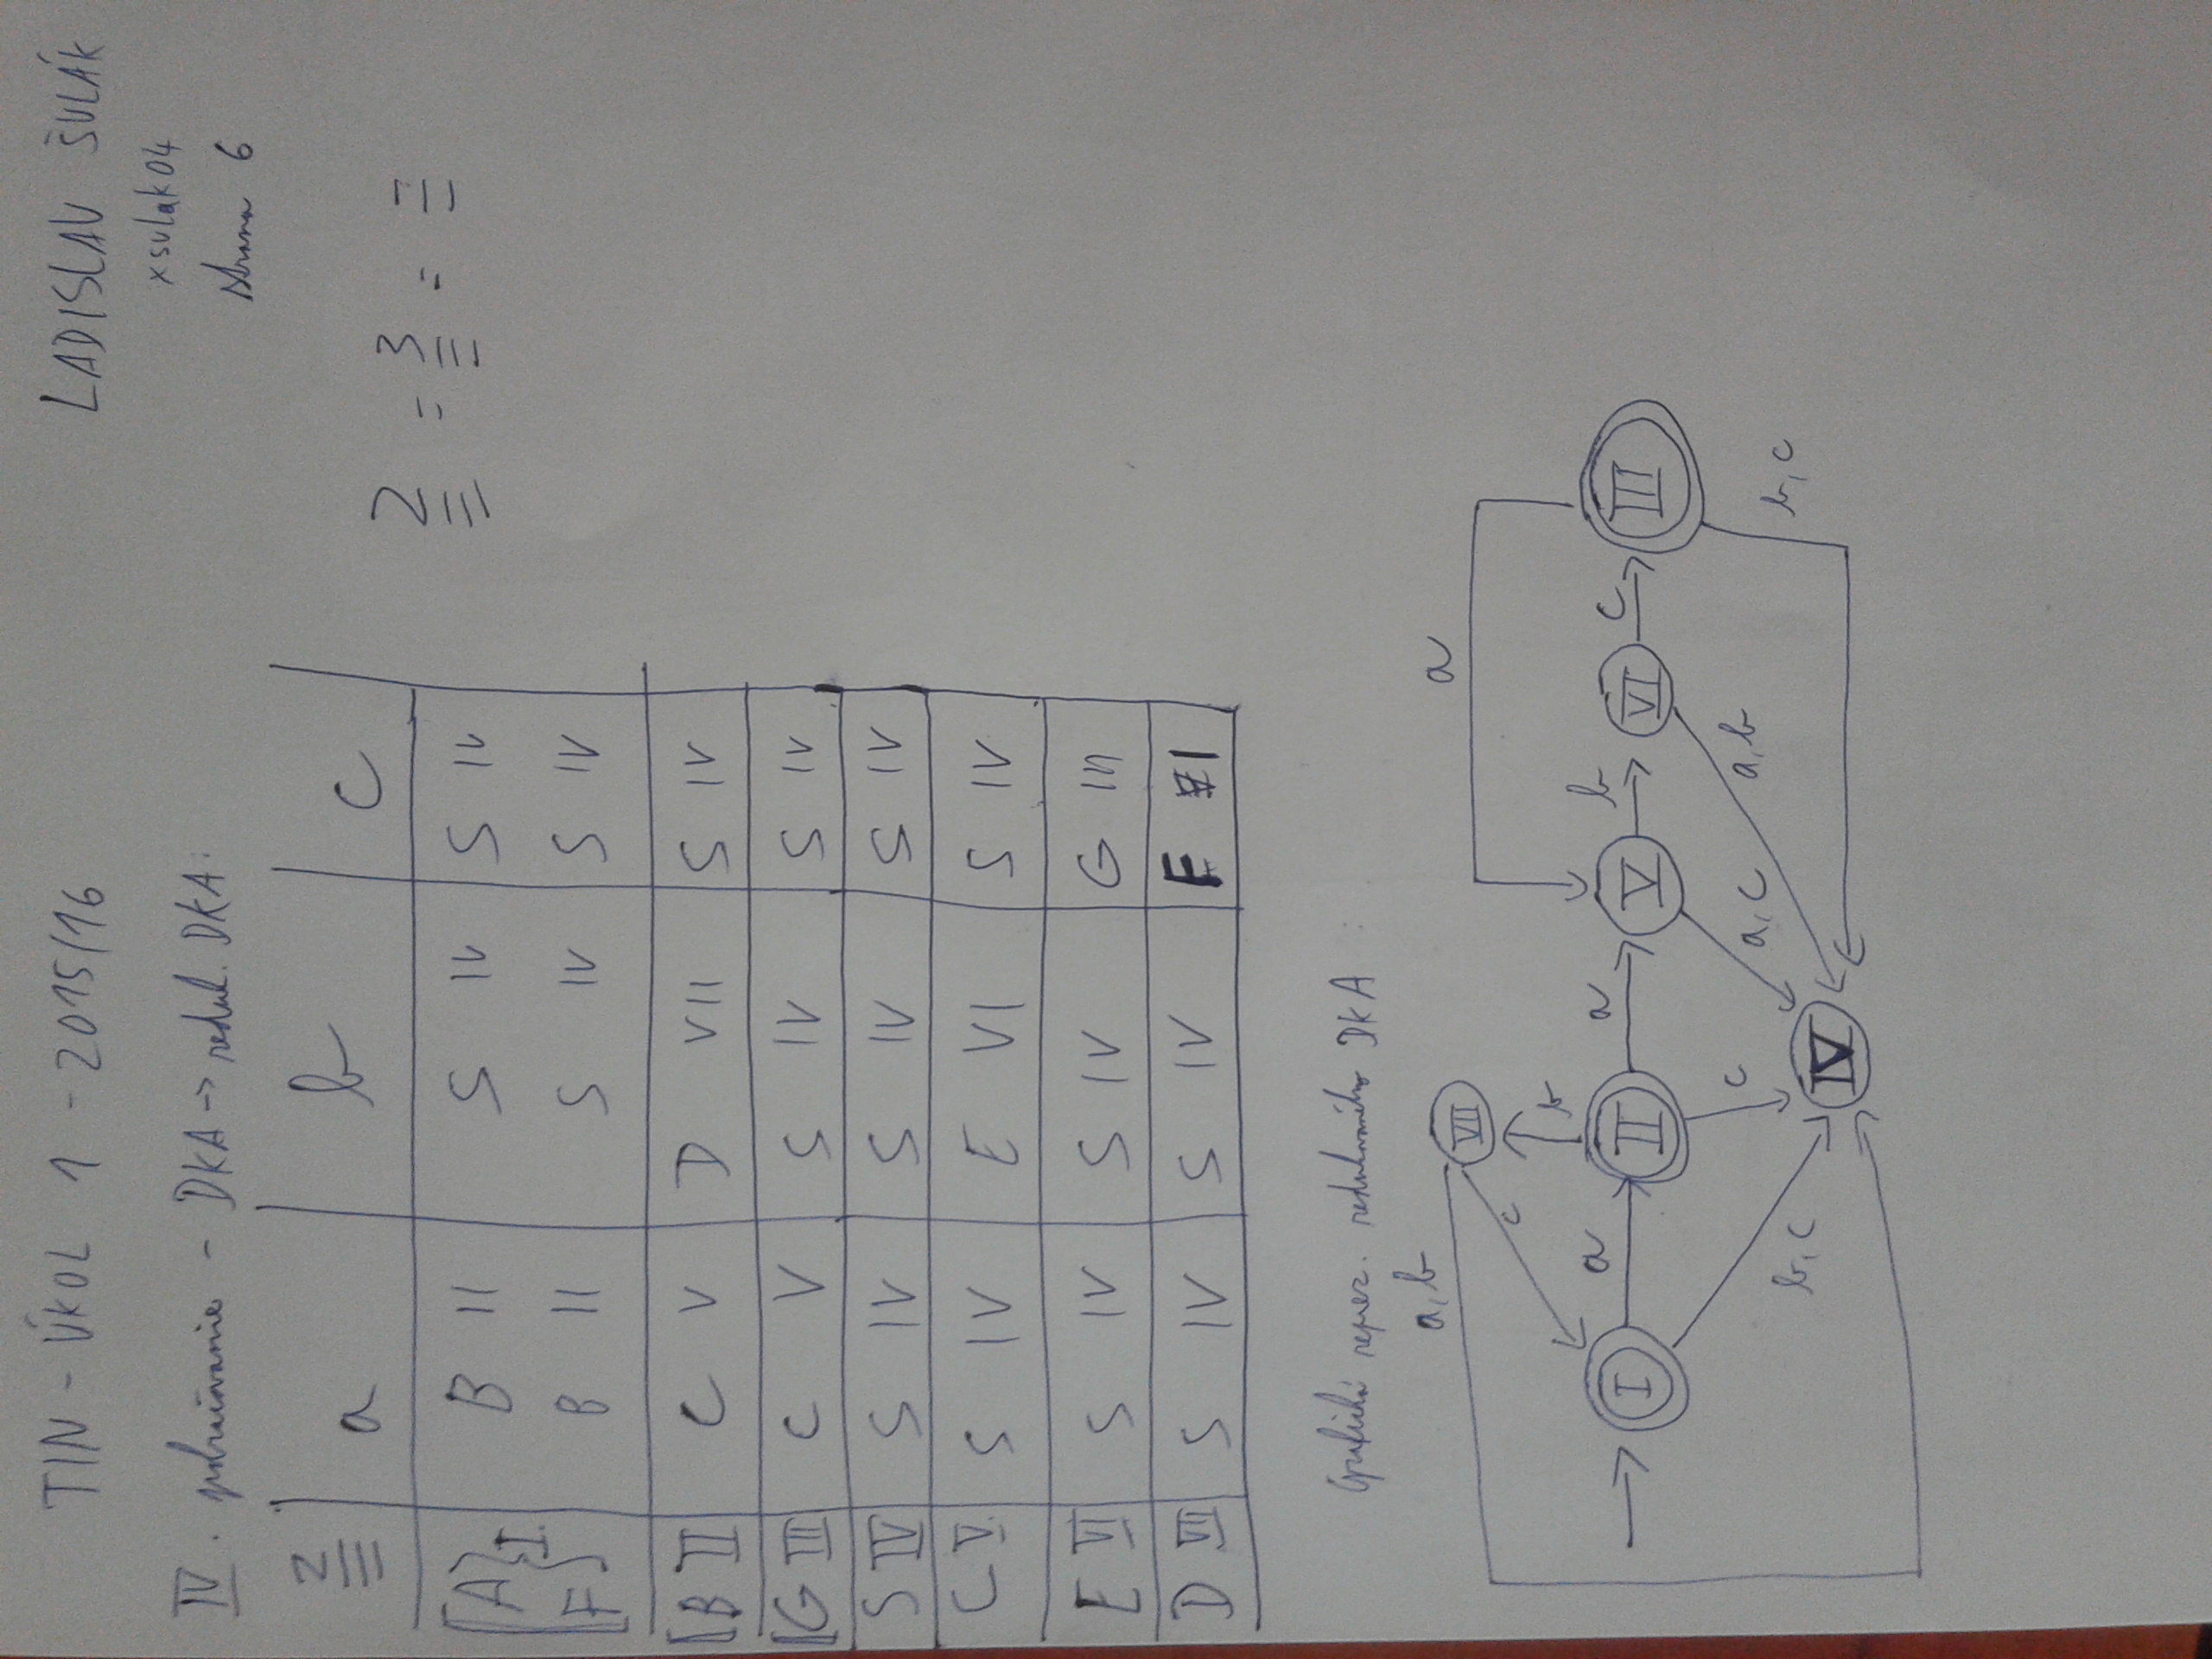 TIN - ÚKOL 1 - 2015/16
LADISLAV ŠULÁK
xsulak04
strana 6
IV. pokračovanie - DKA -> reduk. DKA:
2≡ a b c
2≡ = 3≡ = ≡
[A } I. B II S IV S IV
F } B II S IV S IV
[B II C V D VII S IV
[G III C V S IV S IV
S IV S IV S IV S IV
C V. S IV E VI S IV
E VI S IV S IV G III
D VII S IV S IV F I
Grafická reprez. redukovaného DKA:
a,b VII a
c b
-> I a II a V b VI c III
b,c c a,c a,b b,c
IV